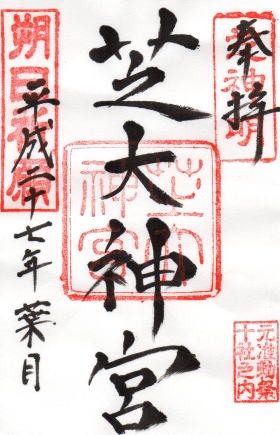 奉拝
芝大神宮
平成二十七年 葉月
元准勅祭
十社之内
芝大神宮